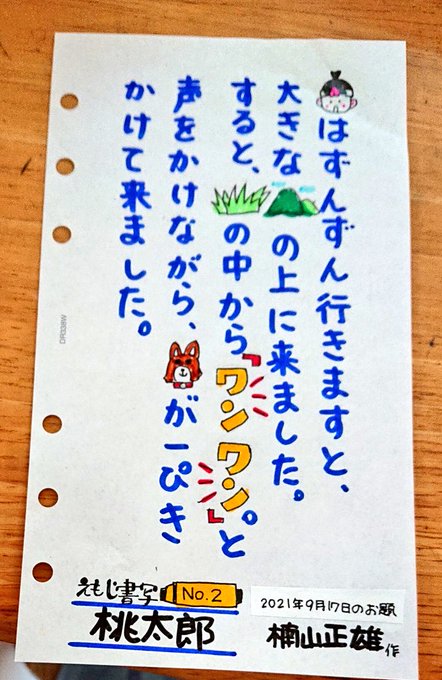 はずんずん行きますと、
大きなの上に来ました。
すると、の中から「ワンワン。」と
声をかけながら、が一ぴき
かけて来ました。
えもじ書写 No.2
桃太郎
2021年9月17日のお題
楠山正雄作